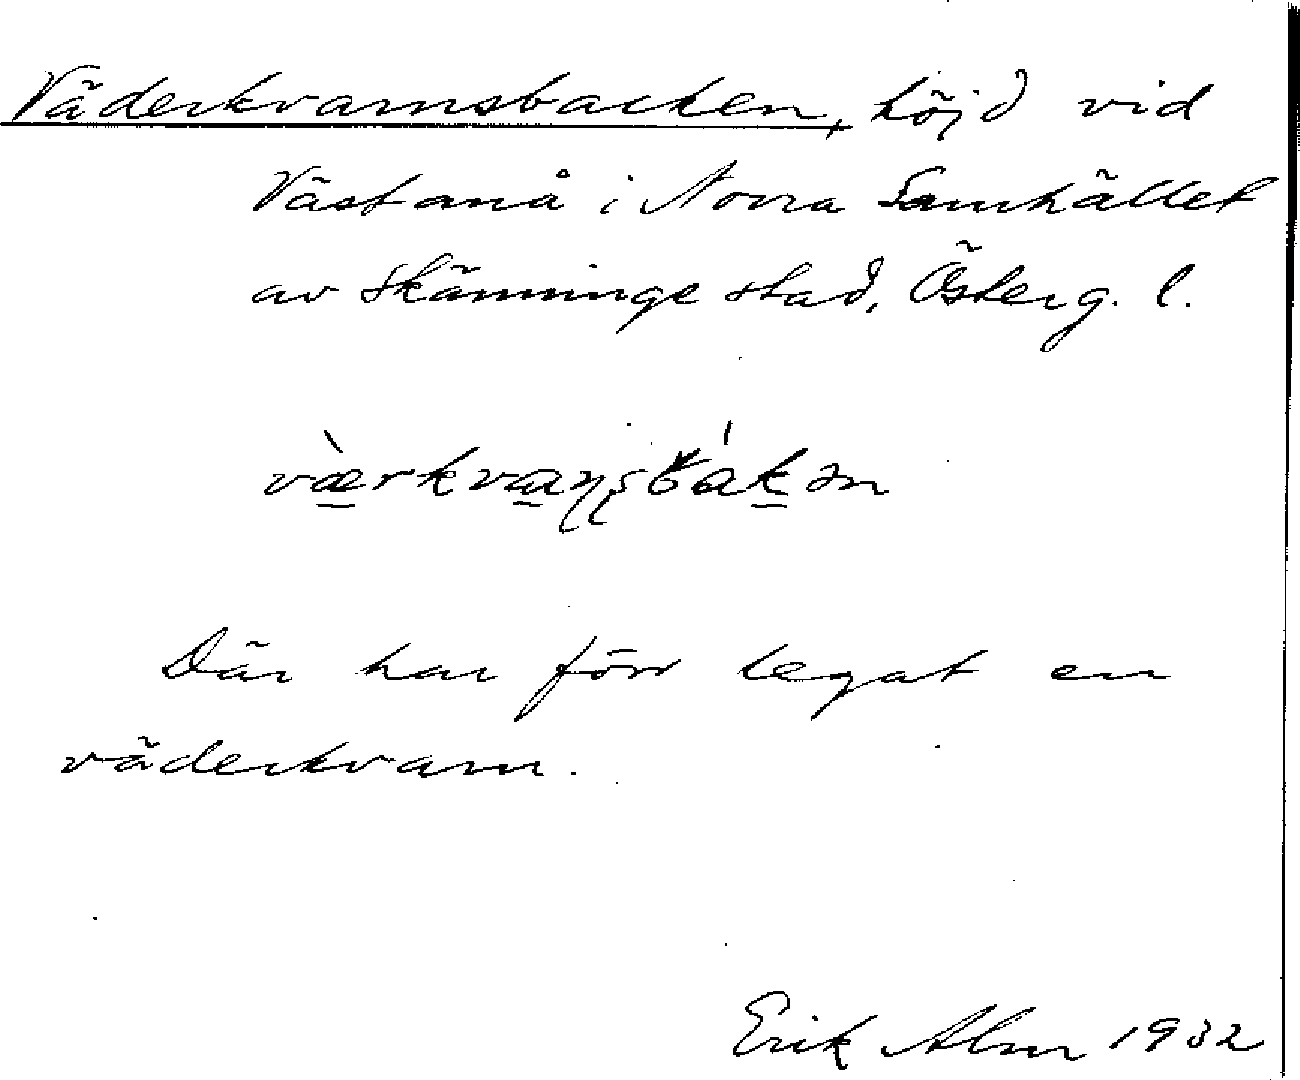 Väderkvarnsbacken, höjd vid
Västanå i Norra Samhället
av Skänninge stad, Österg. l.
væ̀rkvaɳʂbákən
Där har förr legat en
väderkvarn.
Erik Alm 1932